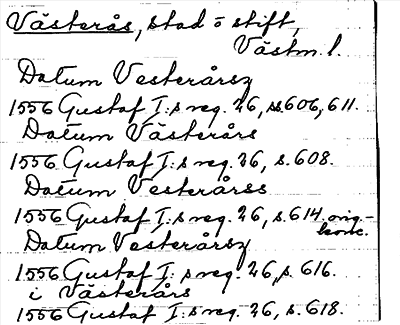 Västerås, stad o stift,
Västm. l.
Datum Vesterårsz
1556 Gustaf I:s reg. 26, ss. 606, 611.
Datum Västerårs
1556 Gustaf I:s reg. 26, s. 608.
Datum Vesterårss
1556 Gustaf I:s reg. 26, s. 614. orig.-
konc.
Datum Vesterårsz
1556 Gustaf I:s reg. 26, s. 616.
i Västerårs
1556 Gustaf I:s reg. 26, s. 618.